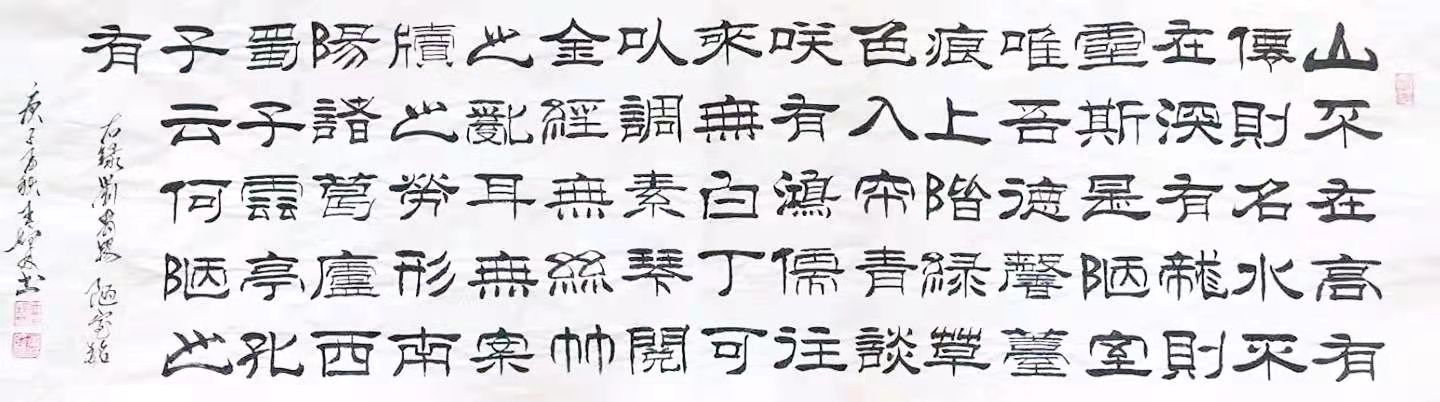 山不在高有
僊則名水不
在深有龍則
靈斯是陋室
唯吾德馨薹
痕上階緑草
色入帘青談
咲有鴻儒往
來無白丁可
以調素琴閱
金經無絲竹
之亂耳無案
牘之勞形南
陽諸葛廬西
蜀子雲亭孔
子云何陋之
有
右錄劉禹錫陋室銘
庚子書